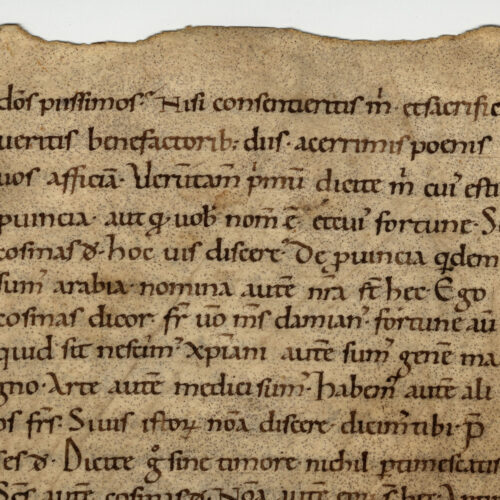 dōs piissimos. Nisi consenueritis m̄ et sacrific
ueritis benefactorib; diis. acerrimis poenis
uos afficiā. Verūtam̄ p̄mū dicite m̄ cui' esti
puincia. aut q̄ uob' nom̄ ē et cui' fortune. S
cosmas d̄. hoc uis discere. De puincia q̄dem
sum' arabia. nomina autē nr̄a st̄ hec. Ego
cosmas dicor. fr̄ uō m̄s damian'. fortune aū
quid sit nescim'. Xp̄iani autē sum' genē ma
gno. Arte autē medici sum'. Habem' autē ali
os fr̄s. Si uis istoꝝ nōa discere dicim' tibi. p̄
ses d̄. Dicite g̊ sine timore nichil ptimescatis
Sc̄s autē cosmas d̄. Nōa autē